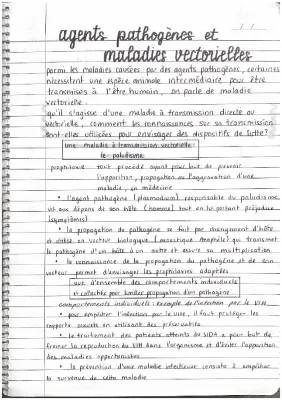 agents pathogènes et
maladies vectorielles
parmi les maladies causées par des agents pathogènes, certaines
nécessitent une espèce animale intermédiaire pour être
transmises à l'être humain, on parle de maladie
vectorielle.
qu'il s'agisse d'une maladie à transmission directe ou
vectorielle, comment les connaissances sur sa transmission
sont-elles utilisées pour envisager des dispositifs de lutte?
une maladie à transmission vectorielle:
le paludisme
prophylaxie tout procédé ayant pour but de prévenir
l'apparition, propagation ou l'aggravation d'une
maladie, en médecine
• l'agent pathogène (plasmodium) responsable du paludisme
vit aux dépens de son hôte (homme) tout en lui posant préjudice
(symptômes)
• la propagation du pathogène se fait par changement d'hôte
et utilise un vecteur biologique (moustique Anophèle) qui transmet
le pathogène d'un hôte à un autre et assure sa multiplication.
• la connaissance de la propagation du pathogène et de son
vecteur permet d'envisager les prophylaxies adaptées
d'ensemble des comportements individuels
et collectifs pour limiter propagation d'un pathogène
comportements individuels: exemple de l'infection par le VIH
• pour empêcher l'infection par le VIH, il faut protéger les
rapports sexuels en utilisant des préservatifs
• le traitement des patients atteints du SIDA a pour but de
freiner la reproduction du VIH dans l'organisme et d'éviter l'apparition
des maladies opportunistes
• la prévention d'une maladie infectieuse consiste à empêcher
la survenue de cette maladie